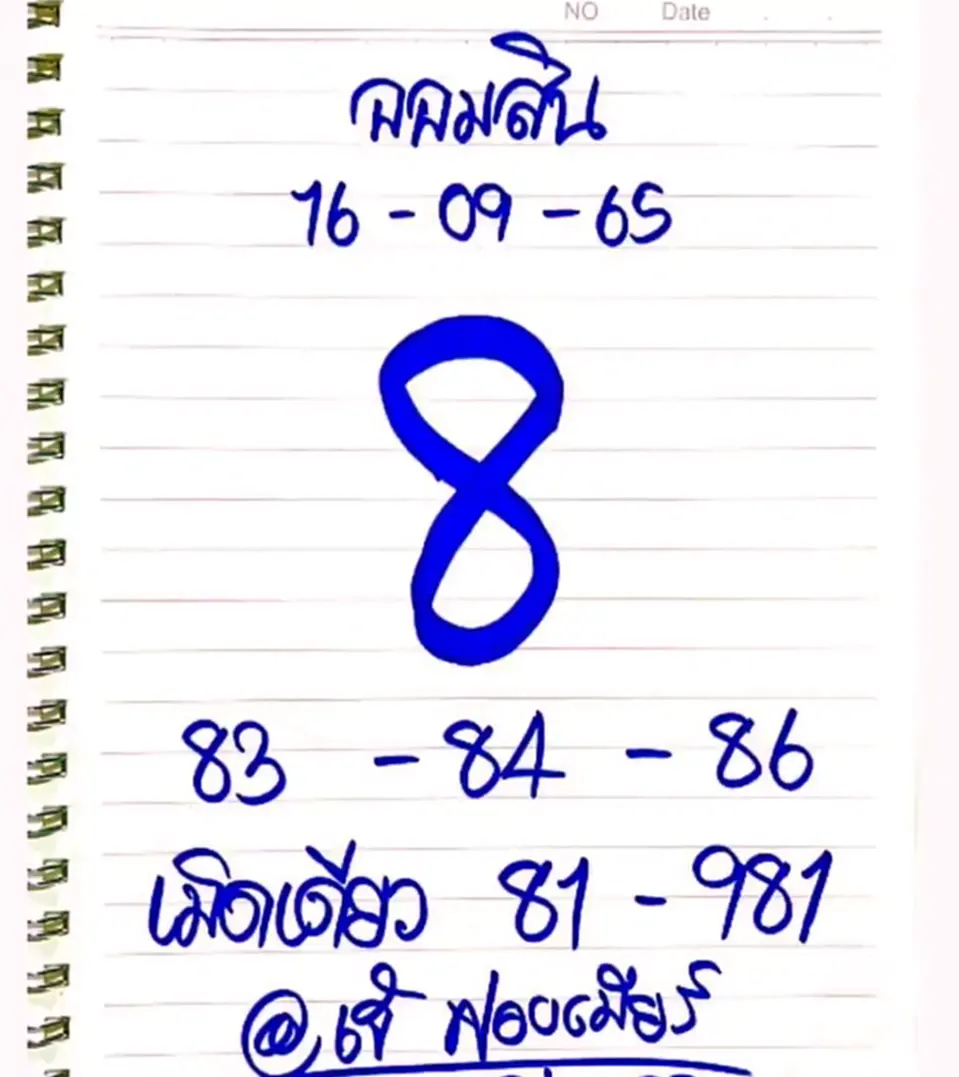 NO Date
ออมสิน
16 - 09 - 65
8
83 - 84 - 86
เม็ดเดียว 81 - 981
@เจ๊ ฟองเบียร์